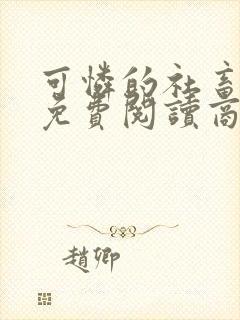 可憐的社畜
免費閱讀高
趙卿